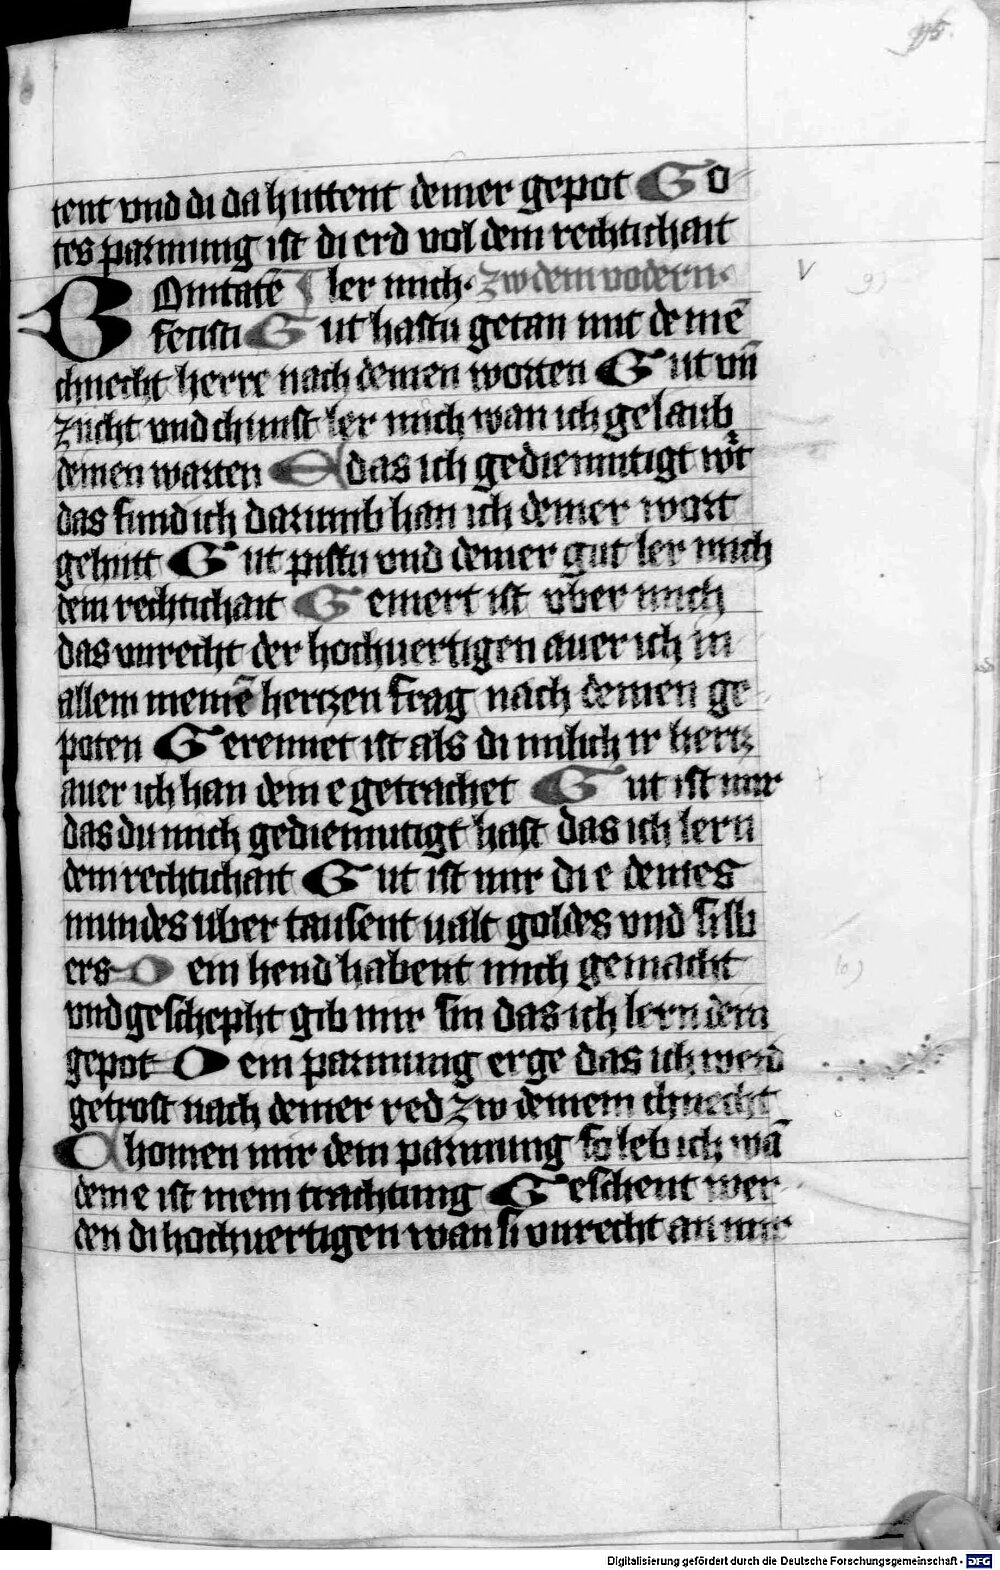 95.
tent vnd di da huttent deiner gepot Go
tes parmung ist di erd vol dein rechtichait
Bonitatē ler mich. zw dem vodern.
fecisti Gut hastu getan mit deinē
chnecht herre nach deinen worten Gut vn̄
zucht vnd chunst ler mich wan ich gelaub
deinen warten das ich gediemutigt
das sund ich darumb han ich deiner wart
gehutt Gut pistu vnd deiner gut ler mich
dein rechtichait Gemert ist vber mich
das vnrecht der hochuertigen auer ich in
allem meinē hertzen frag nach deinen ge
poten Gerennet ist als di milich ir hertz
auer ich han dein e getrachet Gut ist mir
das du mich gediemutigt hast das ich lern
dein rechtichait Gut ist mir di e deines
mundes uber tausent ualt goldes vnd silb
ers Dein hend habent mich gemacht
vnd geschepht gib mir sin das ich lern dein
gepot Dein parmung erge das ich werd
getrost nach deiner red zw deinem chnecht
Chomen mir dein parmung so leb ich wā
dein e ist mein trachtung Geschent wer
den di hochuertigen wan si vnrecht an mir
V
9)
10)
Digitalisierung gefördert durch die Deutsche Forschungsgemeinschaft - DFG